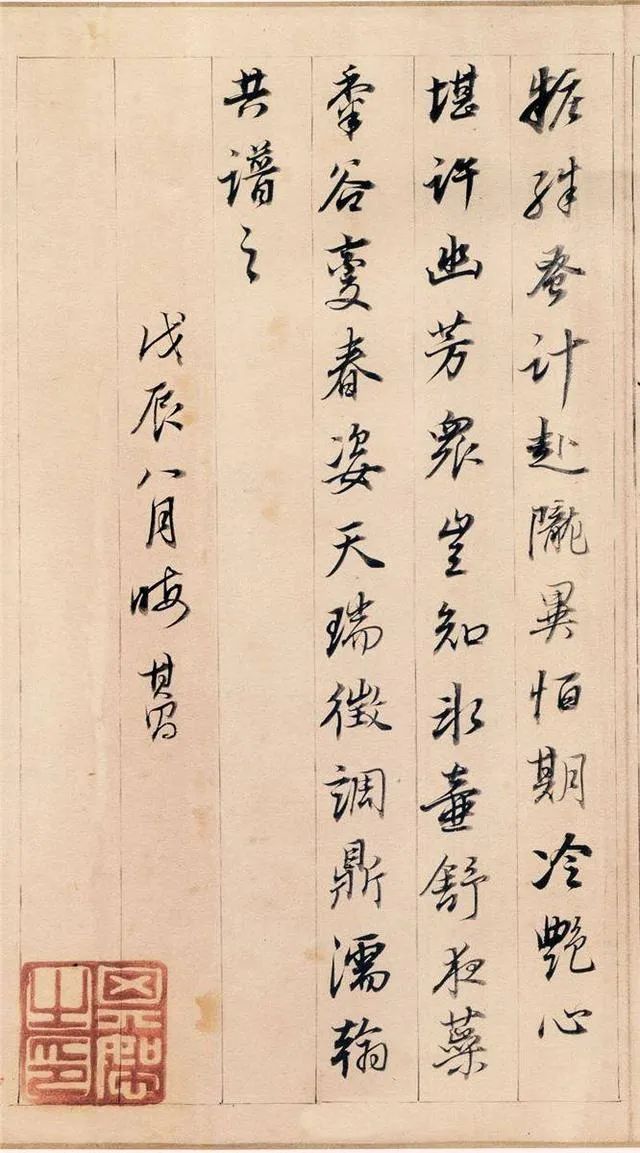 殊蚤計赴隴異恒期冷艷心
堪許幽芳衆豈知冰壺舒夜蘂
黍谷變春姿天瑞徵調鼎濡翰
共譜之
戊辰八月晦其昌